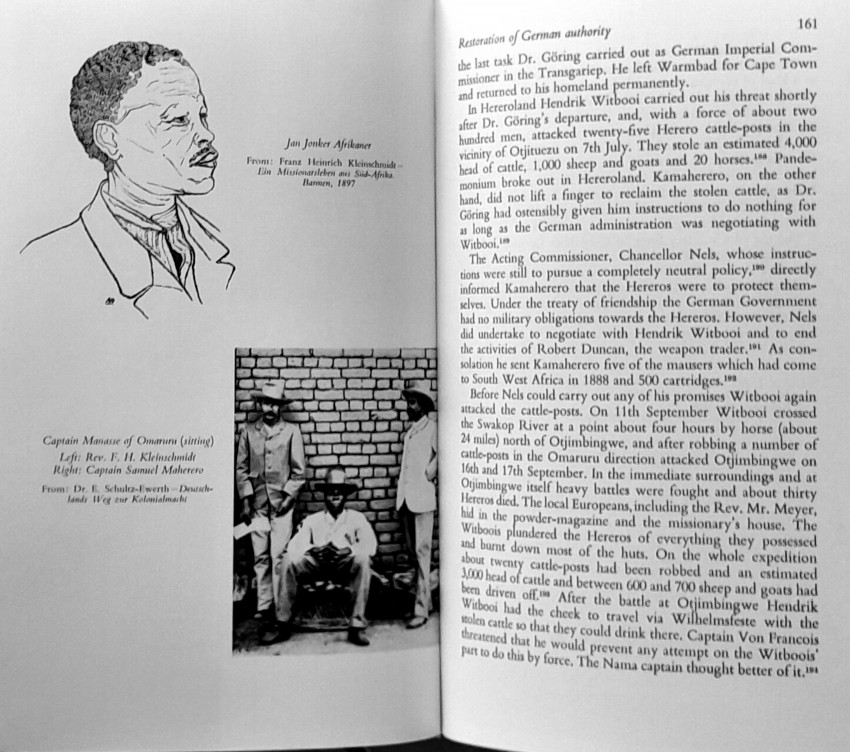 Jan Jonker Afrikaner
From: Franz Heinrich Kleinschmidt—
Ein Missionarsleben aus Süd-Afrika.
Barmen, 1897
Captain Manasse of Omaruru (sitting)
Left: Rev. F. H. Kleinschmidt
Right: Captain Samuel Maherero
From: Dr. E. Schultz-Ewerth—Deutsch-
lands Weg zur Kolonialmacht
Restoration of German authority 161
the last task Dr. Göring carried out as German Imperial Com-
missioner in the Transgariep. He left Warmbad for Cape Town
and returned to his homeland permanently.
In Hereroland Hendrik Witbooi carried out his threat shortly
after Dr. Göring's departure, and, with a force of about two
hundred men, attacked twenty-five Herero cattle-posts in the
vicinity of Otjituezu on 7th July. They stole an estimated 4,000
head of cattle, 1,000 sheep and goats and 20 horses.¹⁸⁸ Pande-
monium broke out in Hereroland. Kamaherero, on the other
hand, did not lift a finger to reclaim the stolen cattle, as Dr.
Göring had ostensibly given him instructions to do nothing for
as long as the German administration was negotiating with
Witbooi.¹⁸⁹
The Acting Commissioner, Chancellor Nels, whose instruc-
tions were still to pursue a completely neutral policy,¹⁹⁰ directly
informed Kamaherero that the Hereros were to protect them-
selves. Under the treaty of friendship the German Government
had no military obligations towards the Hereros. However, Nels
did undertake to negotiate with Hendrik Witbooi and to end
the activities of Robert Duncan, the weapon trader.¹⁹¹ As con-
solation he sent Kamaherero five of the mausers which had come
to South West Africa in 1888 and 500 cartridges.¹⁹²
Before Nels could carry out any of his promises Witbooi again
attacked the cattle-posts. On 11th September Witbooi crossed
the Swakop River at a point about four hours by horse (about
24 miles) north of Otjimbingwe, and after robbing a number of
cattle-posts in the Omaruru direction attacked Otjimbingwe on
16th and 17th September. In the immediate surroundings and at
Otjimbingwe itself heavy battles were fought and about thirty
Hereros died. The local Europeans, including the Rev. Mr. Meyer,
hid in the powder-magazine and the missionary's house. The
Witboois plundered the Hereros of everything they possessed
and burnt down most of the huts. On the whole expedition
about twenty cattle-posts had been robbed and an estimated
3,000 head of cattle and between 600 and 700 sheep and goats had
been driven off.¹⁹³ After the battle at Otjimbingwe Hendrik
Witbooi had the cheek to travel via Wilhelmsfeste with the
stolen cattle so that they could drink there. Captain Von Francois
threatened that he would prevent any attempt on the Witboois'
part to do this by force. The Nama captain thought better of it.¹⁹⁴